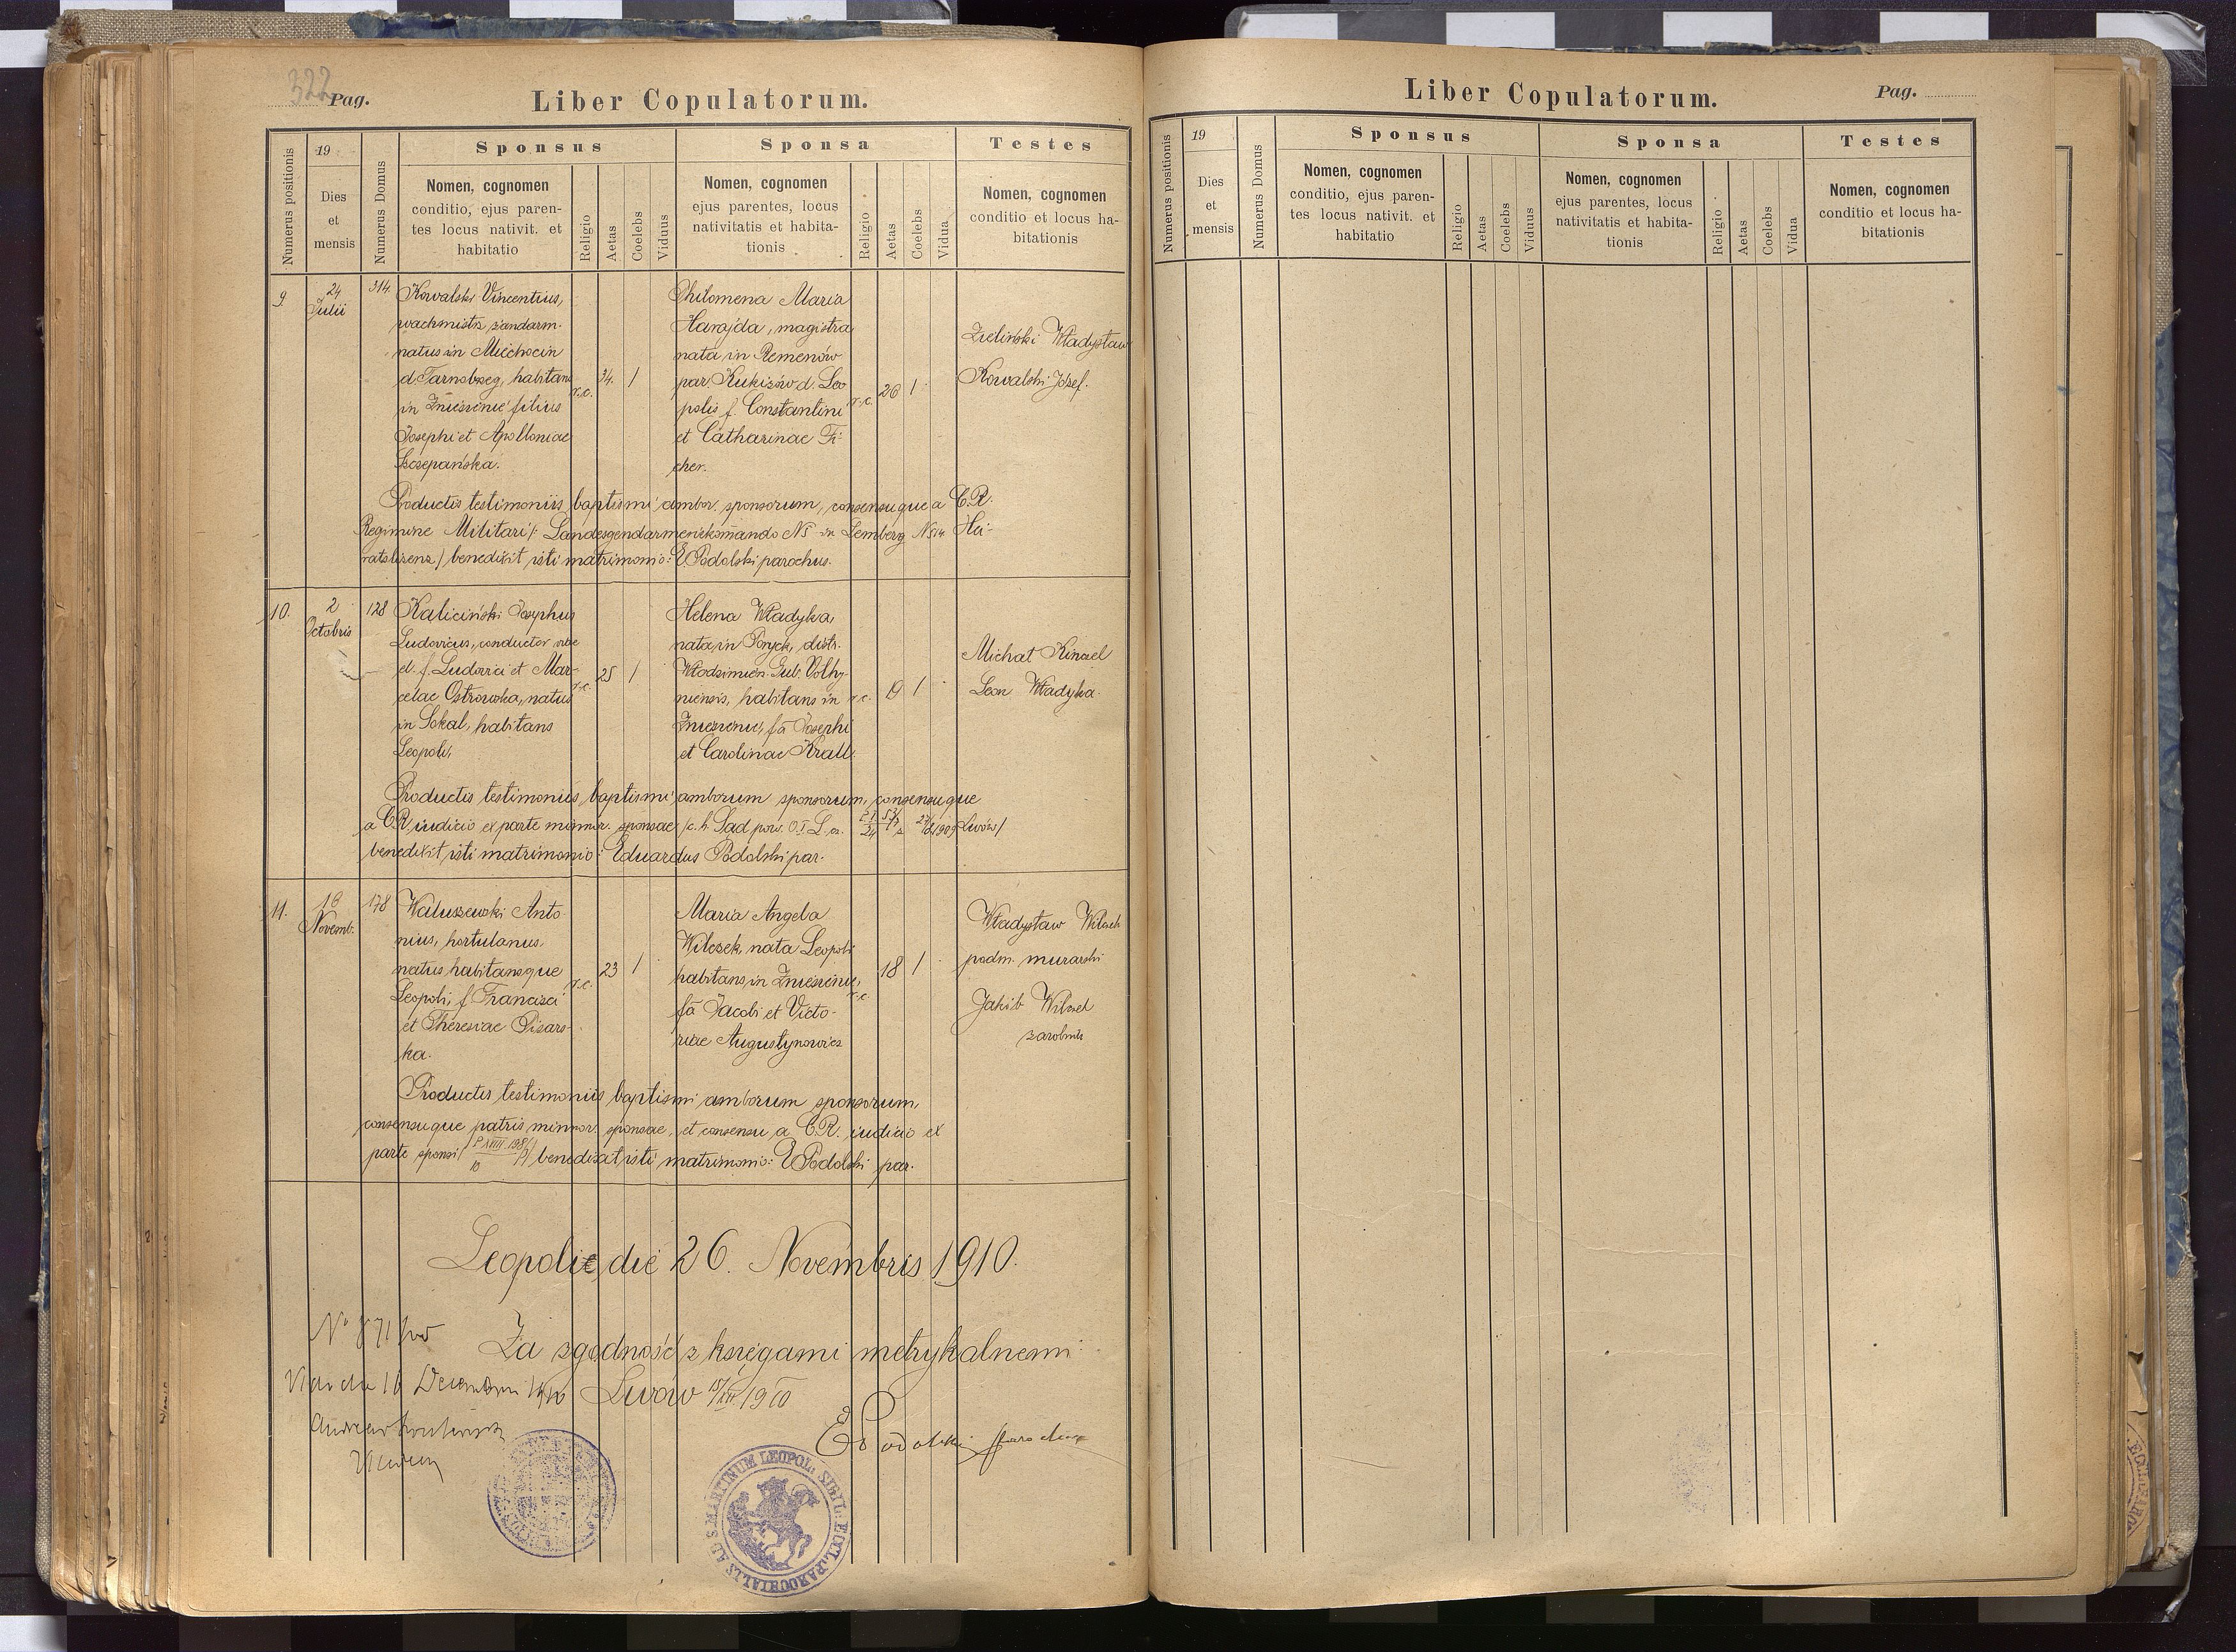 322 Pag.
Liber Copulatorum.
Numerus positionis
19
Dies
et
mensis
Numerus Domus
Sponsus
Nomen, cognomen
conditio, ejus paren-
tes locus nativit. et
habitatio
Religio
Aetas
Coelebs
Viduus
Sponsa
Nomen, cognomen
ejus parentes, locus
nativitatis et habita-
tionis
Religio
Aetas
Coelebs
Vidua
Testes
Nomen, cognomen
conditio et locus ha-
bitationis
9
24
Julii
314.
Kowalski Vincentius,
wachmistz żandarm.
natus in Miechocin
d. Tarnobrzeg, habitans
in Zniesienie filius
Josephi et Apolloniae
Szczepańska.
r.c.
34.
1
Philomena Maria
Harajda, magistra
nata in Remenów
par. Kukizów d. Leo
polis f. Constantini
et Catharinae Fi-
cher.
r.c.
26
1
Zieliński Władysław
Kowalski Józef.
Productis testimoniis baptismi ambor. sponsorum, consensuque a C.R.
Regimine Militari /: Landesgendarmeriekommando N5 in Lemberg Hei-
ratslizenz/ benedixit isti matrimonio: E Podolski parochus.
10.
2
Octobris
128
Kaliciński Josephus
Ludovicus, conductor
el. f. Ludovici et Mar-
celae Ostrowska, natus
in Sokal, habitans
Leopoli,
r.c.
25
1
Helena Władyka,
nata in Poryck, distr.
Włodzimierz. Gub. Volhy-
niensis, habitans in
Zniesienie, fa Josephi
et Carolinae Krall.
r.c.
19
1
Michał Kinael
Leon Władyka.
Productis testimoniis baptismi amborum sponsorum, consensuque
a C.R. iudicio ex parte minor. sponsae /c. k. Sąd pow. Lwów/
benedixit isti matrimonio: Eduardus Podolski par.
11.
19
Novemb.
178
Waluszewski Anto
nius, hortulanus,
natus habitansque
Leopoli, f Francisci
et Theresiae Pisars-
ka.
r.c.
23
1
Maria Angela
Wilczek, nata Leopoli
habitans in Zniesienie,
fa Jacobi et Victo-
riae Augustynowicz
r.c.
18
1
Władysław Wilczek
podm. murarski
Jakób Wilczek
zarobnik
Productis testimoniis baptismi amborum sponsorum,
consensuque patris minnor. sponsae, et consensu a C.R. iudicio ex
parte sponsi benedixit isti matrimonio: E Podolski par.
Leopoli die 26. Novembris 1910.
Za zgodność z księgami metrykalnemi
No 871
die 16 Decembri 1910
Lwów 15/XII 1910
E Podolski parochus
SIGIL: ECCL. PAROCHIALIS AD S. MARTINUM LEOPOL:
Liber Copulatorum.
Pag.
Numerus positionis
19
Dies
et
mensis
Numerus Domus
Sponsus
Nomen, cognomen
conditio, ejus paren-
tes locus nativit. et
habitatio
Religio
Aetas
Coelebs
Viduus
Sponsa
Nomen, cognomen
ejus parentes, locus
nativitatis et habita-
tionis
Religio
Aetas
Coelebs
Vidua
Testes
Nomen, cognomen
conditio et locus ha-
bitationis